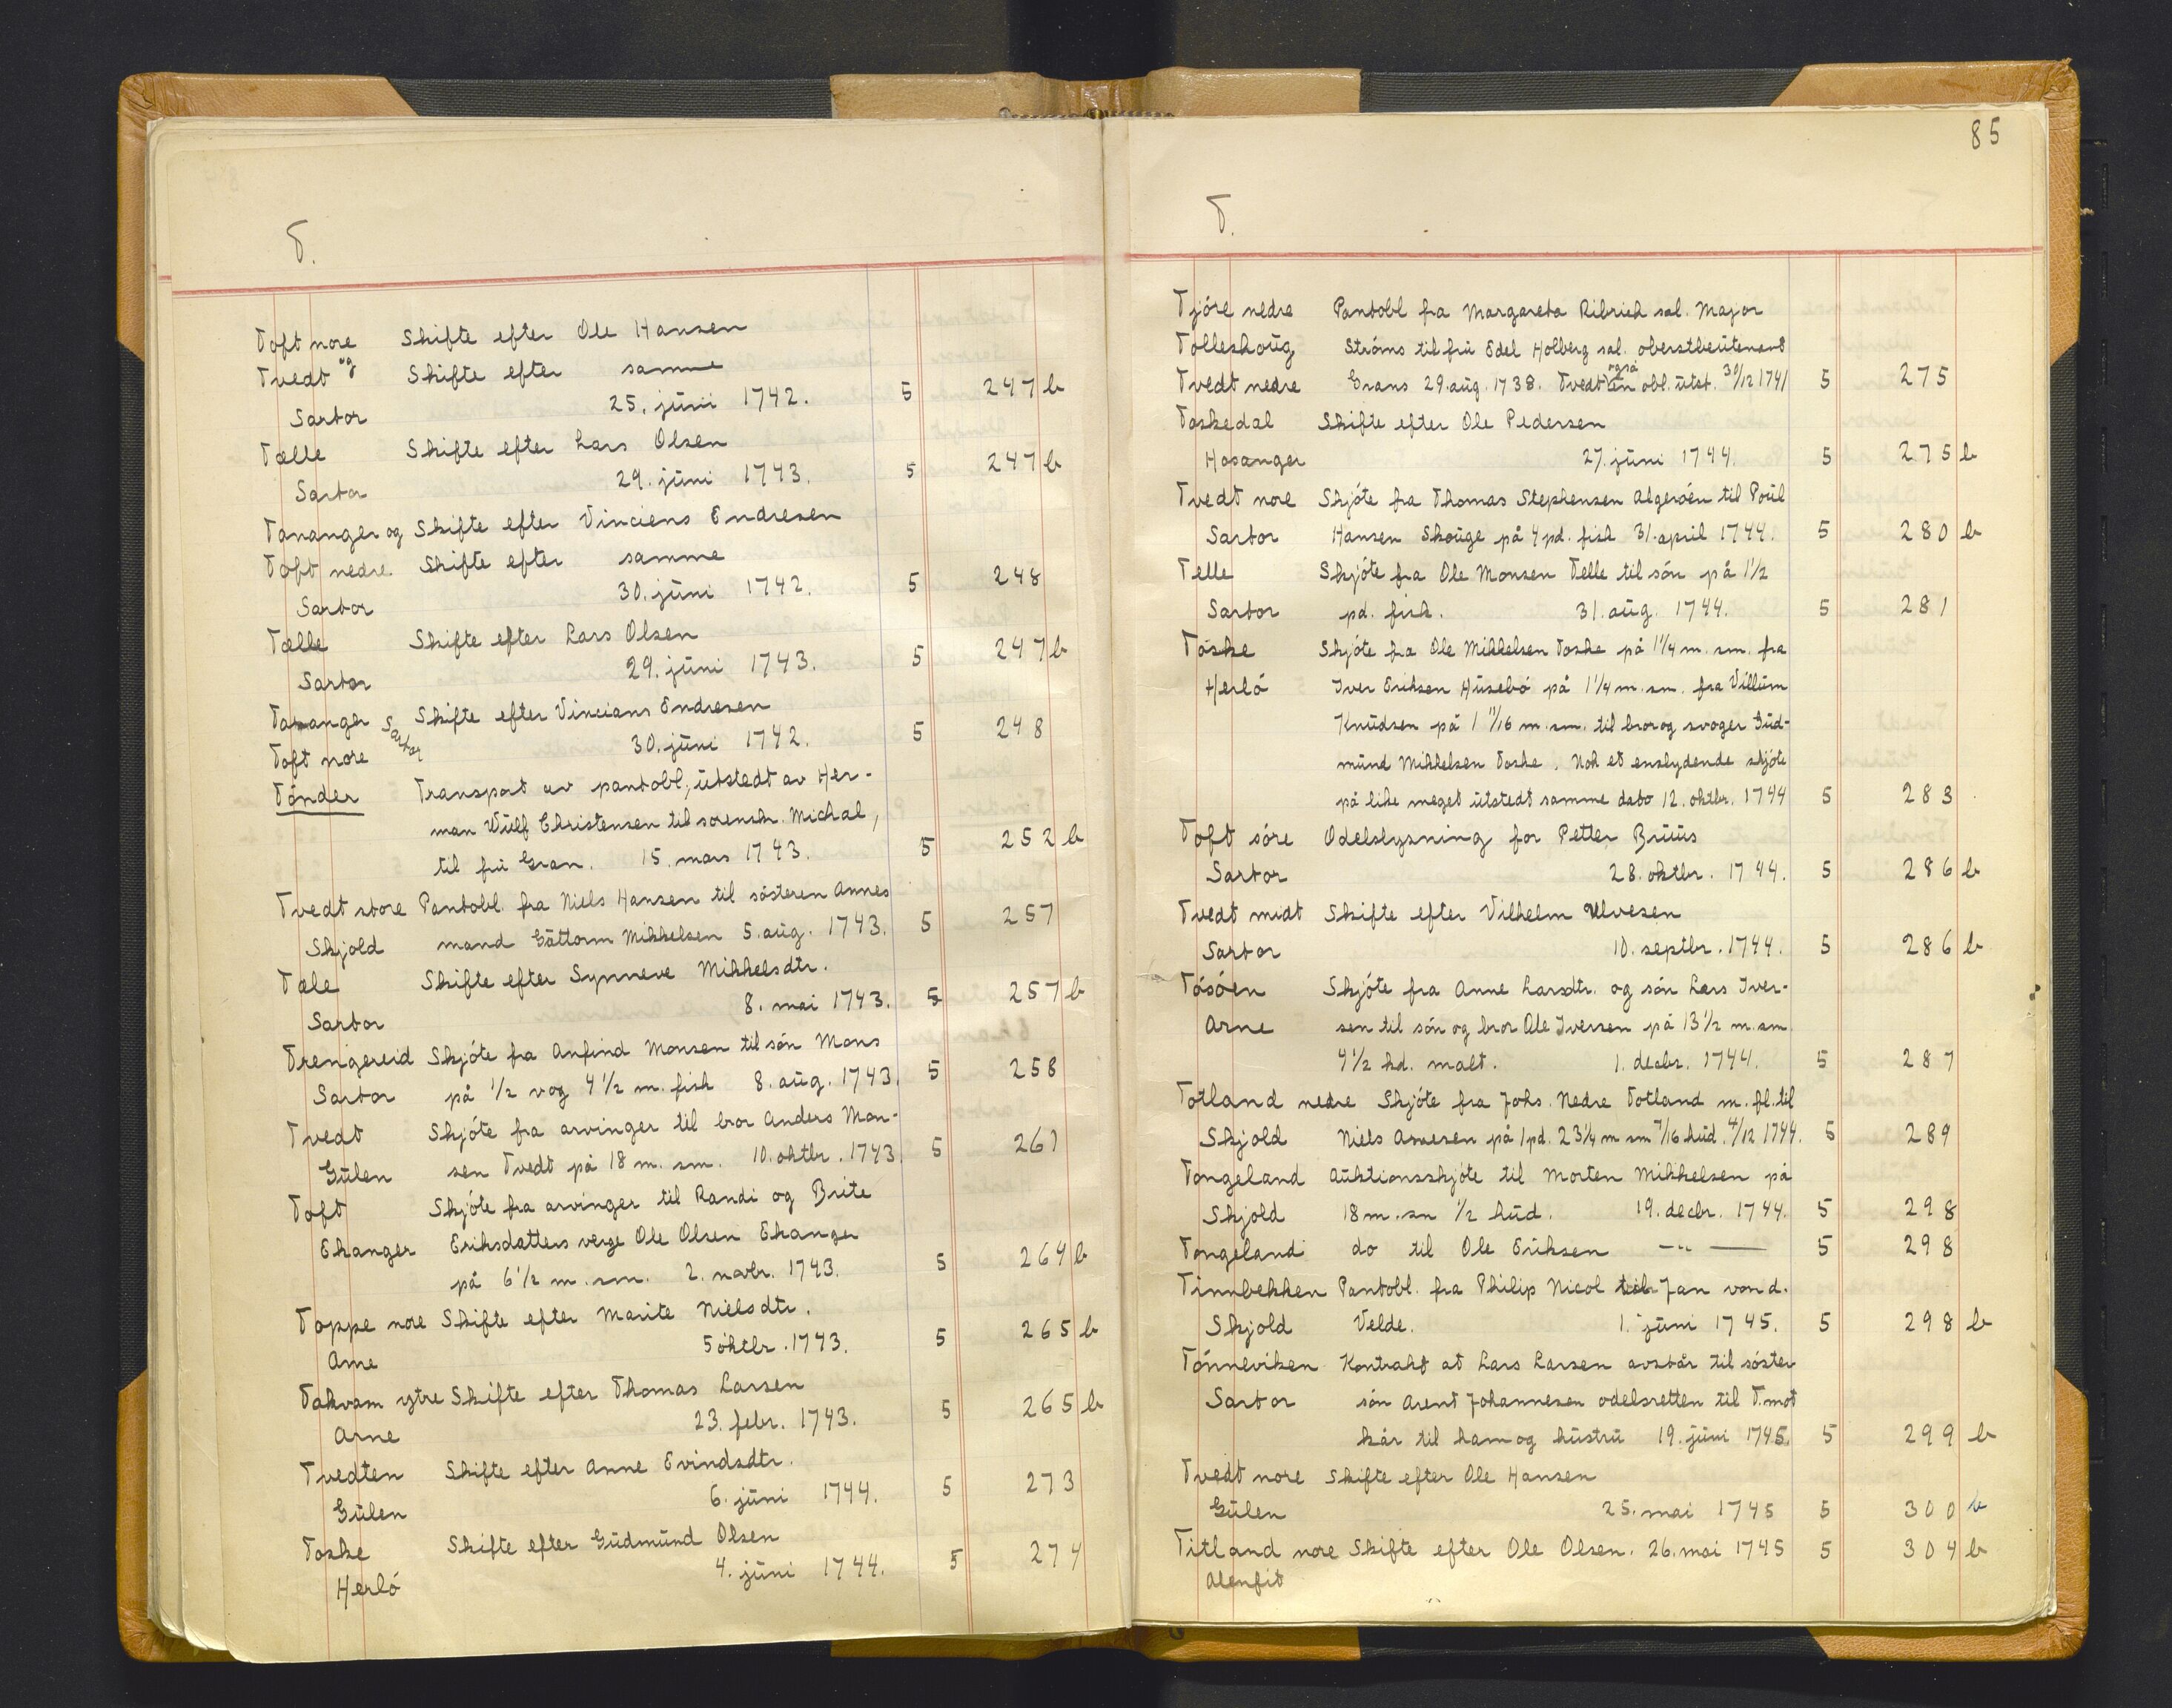 T.
Toft nore Skifte efter Ole Hansen
Tvedt og Skifte efter samme
Sartor 25. júni 1742. 5 247 b
Tælle Skifte efter Lars Olsen
Sartor 29. júni 1743. 5 247 b
Tananger og Skifte efter Vinciens Endresen
Toft nedre Skifte efter samme
Sartor 30. júni 1742. 5 248
Tælle Skifte efter Lars Olsen
Sartor 29. júni 1743. 5 247 b
Tananger Sartor Skifte efter Vincians Endresen
Toft nore 30. júni 1742. 5 248
Tónder Transport av pantobl, útstedt av Her-
man Wúlf Christensen til sorenskr. Michal,
til frú Gran. 15. mars 1743. 5 252 b
Tvedt store Pantobl. fra Niels Hansen til sósteren Annes
Skjold mand Gúttorm Mikkelsen 5. aúg. 1743. 5 257
Tæle Skifte efter Synneve Mikkelsdtr.
Sartor 8. mai 1743. 5 257 b
Trengereid Skjóte fra Anfind Monsen til són Mons
Sartor på 1/2 vog 4 1/2 m. fisk 8. aúg. 1743. 5 258
Tvedt Skjóte fra arvinger til bror Anders Mon-
Gúlen sen Tvedt på 18 m. sm. 10. oktbr. 1743. 5 261
Toft Skjóte fra arvinger til Randi og Brite
Ekanger Eriksdatters verge Ole Olsen Ekanger
på 6 1/2 m. sm. 2. novbr. 1743. 5 264 b
Toppe nore Skifte efter Marite Nielsdtr.
Arne 5 oktbr. 1743. 5 265 b
Takvam ytre Skifte efter Thomas Larsen
Arne 23. febr. 1743. 5 265 b
Tvedten Skifte efter Anne Evindsdtr.
Gúlen 6. júni 1744. 5 273
Toske Skifte efter Gúdmúnd Olsen
Herló 4. júni 1744. 5 274
85
T.
Tjóre nedre Pantobl fra Margareta Ribrich sal. Major
Tolleshoúg Stróms til frú Edel Holberg sal. oberstlieútenant
Tvedt nedre Grans 29. aúg. 1738. Tvedt også en obl. útst. 30/12 1741 5 275
Toskedal Skifte efter Ole Pedersen
Hosanger 27. júni 1744. 5 275 b
Tvedt nore Skjóte fra Thomas Stephensen Algeróen til Poúl
Sartor Hansen Skoúge på 4 pd. fisk 31. april 1744. 5 280 b
Telle Skjóte fra Ole Monsen Telle til són på 1 1/2
Sartor pd. fisk. 31. aúg. 1744. 5 281
Toske Skjóte fra Ole Mikkelsen Toske på 1 1/4 m. sm. fra
Herló Iver Eriksen Húsebó på 1 1/4 m. sm. fra Villúm
Knúdsen på 1 11/16 m. sm. til bror og svoger Gúd-
múnd Mikkelsen Toske. Nok et enslydende skjóte
på like meget útstedt samme dato 12. oktbr. 1744 5 283
Toft sóre Odelslysning for Petter Brúús
Sartor 28. oktbr. 1744. 5 286 b
Tvedt midt Skifte efter Vilhelm Ulvesen
Sartor 10. septbr. 1744. 5 286 b
Tósóen Skjóte fra Anne Larsdtr. og són Lars Iver-
Arne sen til són og bror Ole Iversen på 13 1/2 m. sm.
4 1/2 hd. malt. 1. decbr. 1744. 5 287
Totland nedre Skjóte fra Johs. Nedre Totland m. fl. til
Skjold Niels Arnesen på 1 pd. 23 1/4 m sm 7/16 húd. 4/12 1744. 5 289
Tongeland Aúktionsskjóte til Morten Mikkelsen på
Skjold 18 m. sm 1/2 húd. 19. decbr. 1744. 5 298
Tongeland do til Ole Eriksen —"— 5 298
Tinnbekken Pantobl. fra Philip Nicol til Jan von d.
Skjold Velde. 1. júni 1745. 5 298 b
Tónneviken Kontrakt at Lars Larsen avstår til sóster
Sartor són Arent Johannesen odelsretten til T. mot
kår til ham og hústrú 19. júni 1745. 5 299 b
Tvedt nore Skifte efter Ole Hansen
Gúlen 25. mai 1745 5 300 b
Titland nore Skifte efter Ole Olsen. 26. mai 1745 5 304 b
Alenfit